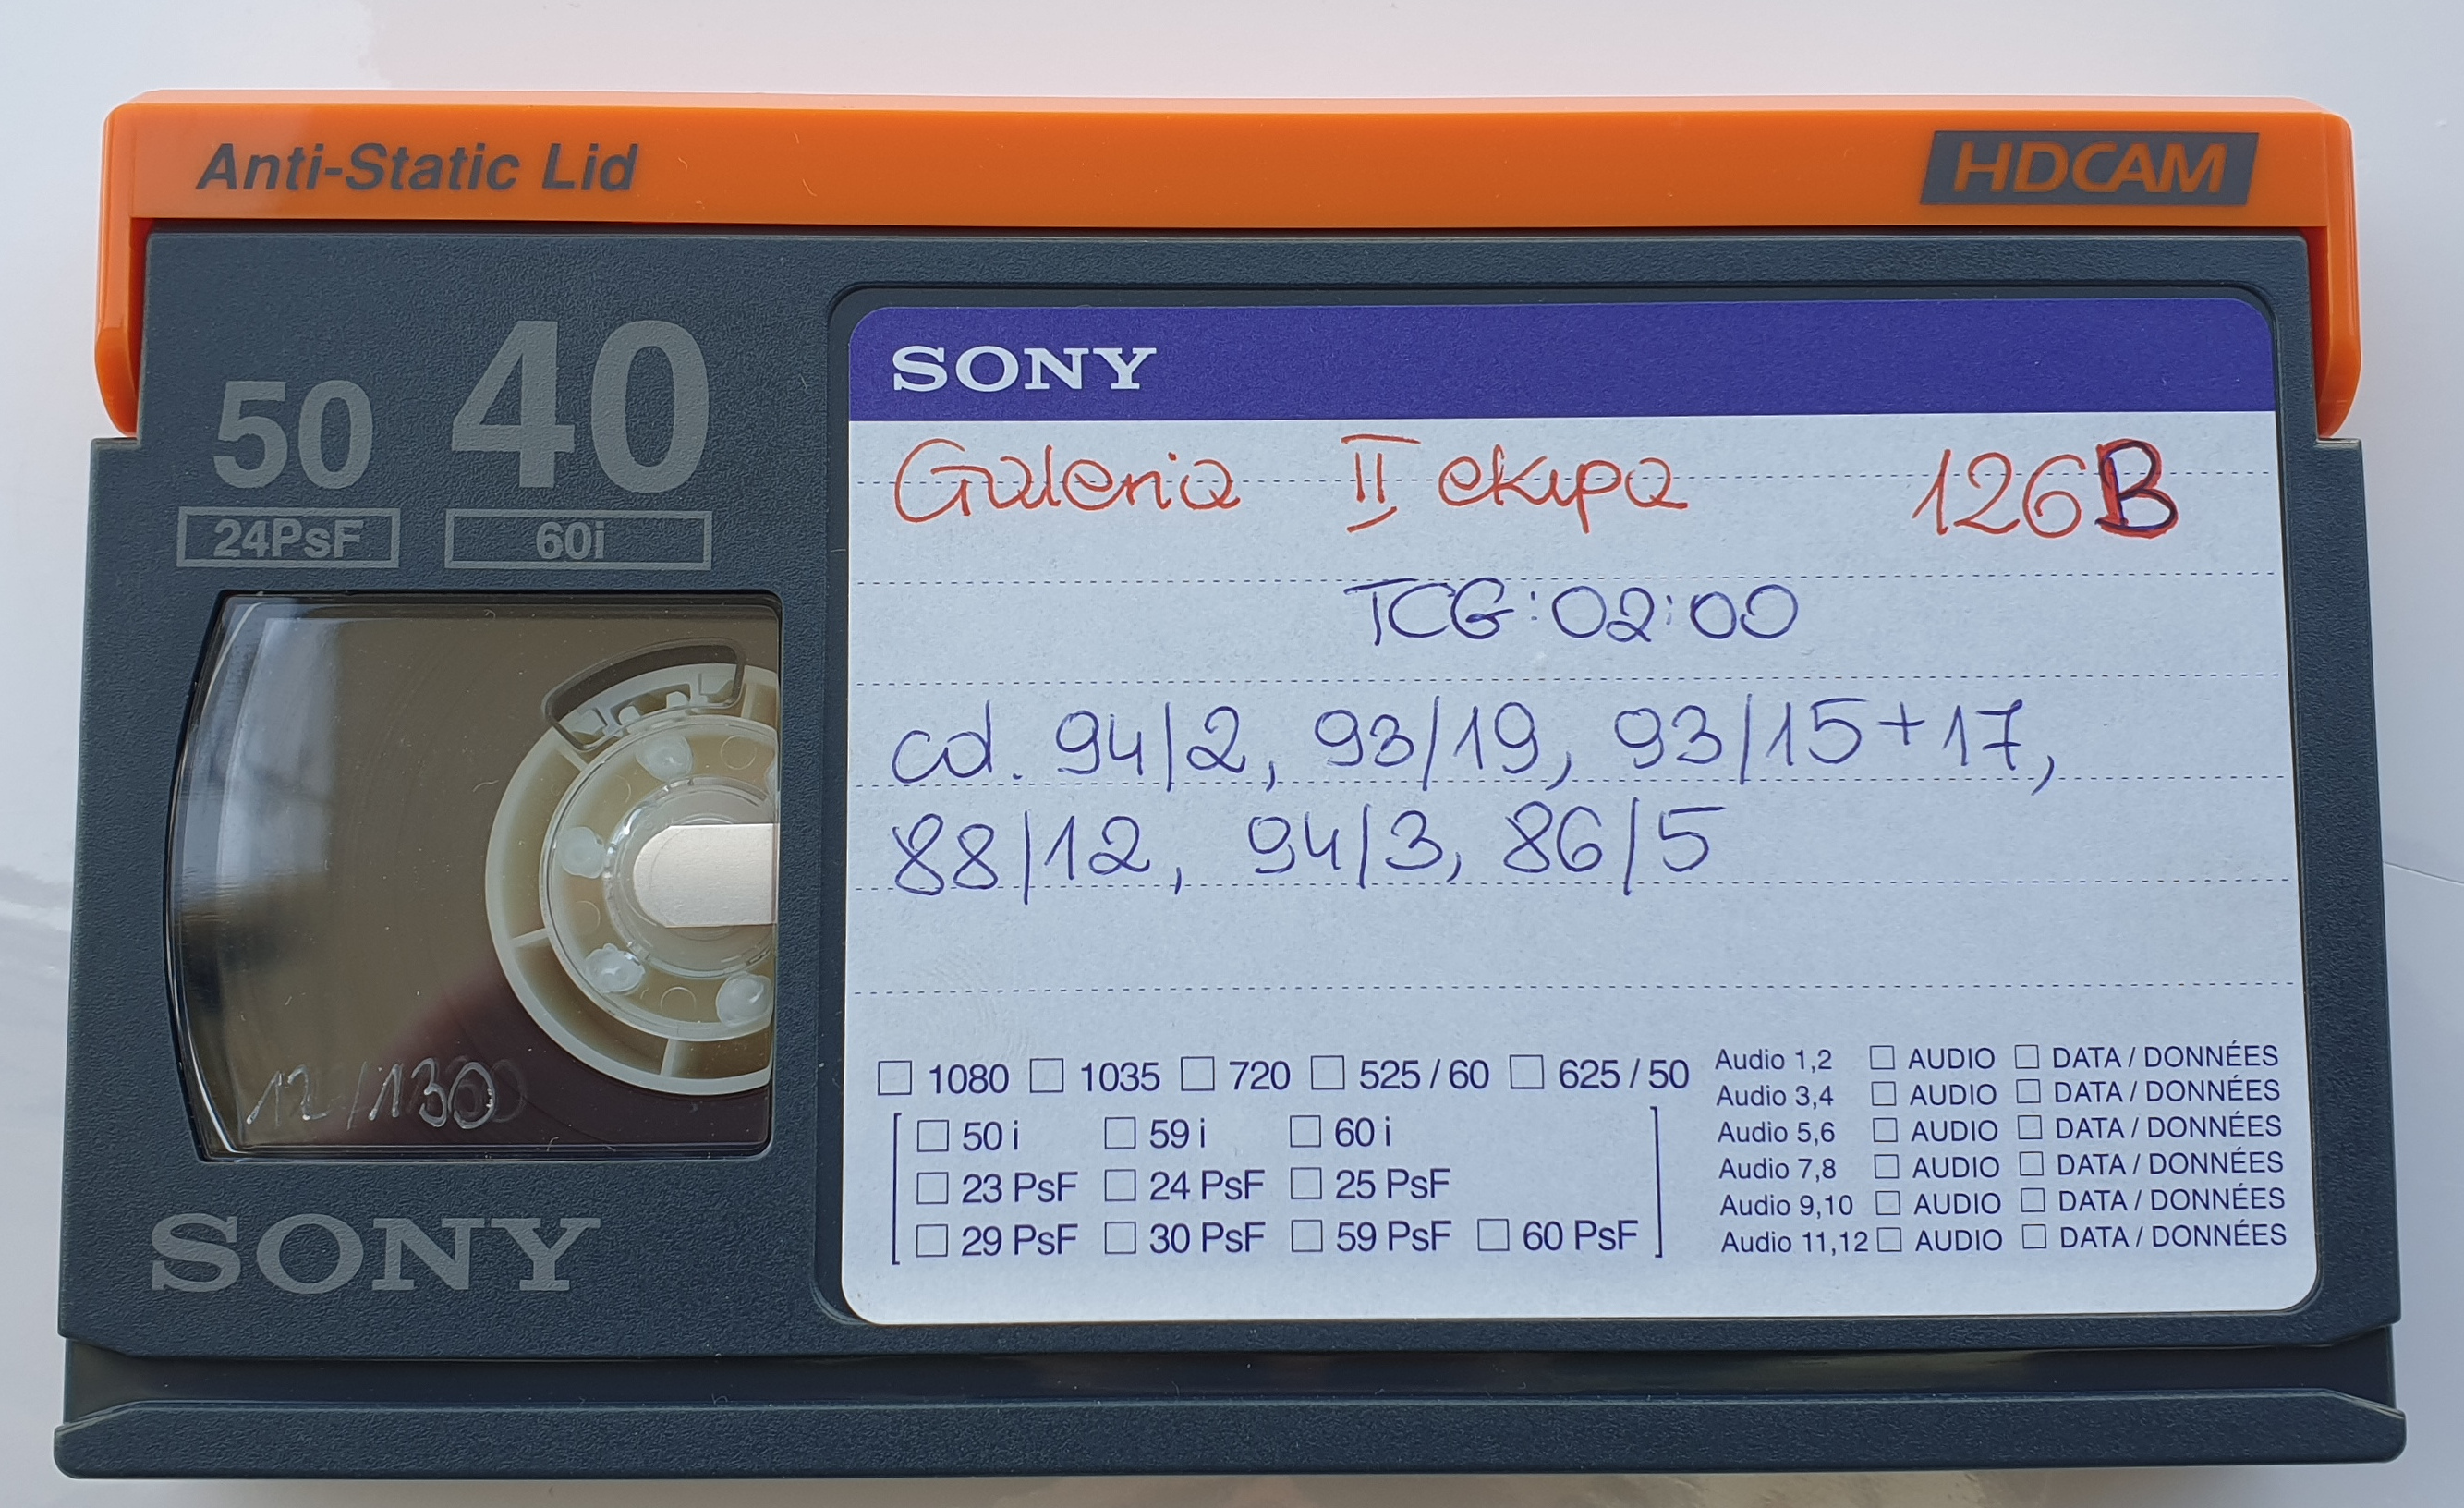 Anti-Static Lid
HDCAM
50 40
24PsF 60i
SONY
Galeria II ekipa 126B
TCG:02:00
cd. 94/2, 93/19, 93/15+17,
88/12, 94/3, 86/5
1080 1035 720 525/60 625/50
50 i 59 i 60 i
23 PsF 24 PsF 25 PsF
29 PsF 30 PsF 59 PsF 60 PsF
Audio 1,2 AUDIO DATA / DONNÉES
Audio 3,4 AUDIO DATA / DONNÉES
Audio 5,6 AUDIO DATA / DONNÉES
Audio 7,8 AUDIO DATA / DONNÉES
Audio 9,10 AUDIO DATA / DONNÉES
Audio 11,12 AUDIO DATA / DONNÉES
12/130
SONY